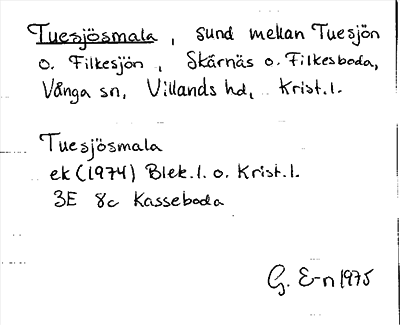 Tuesjösmala, sund mellan Tuesjön
o. Filkesjön, Skärnäs o. Filkesboda,
Vånga sn, Villands hd, Krist.l.
Tuesjösmala
ek (1974) Blek.l. o. Krist.l.
3E 8c Kasseboda
G. E-n 1975